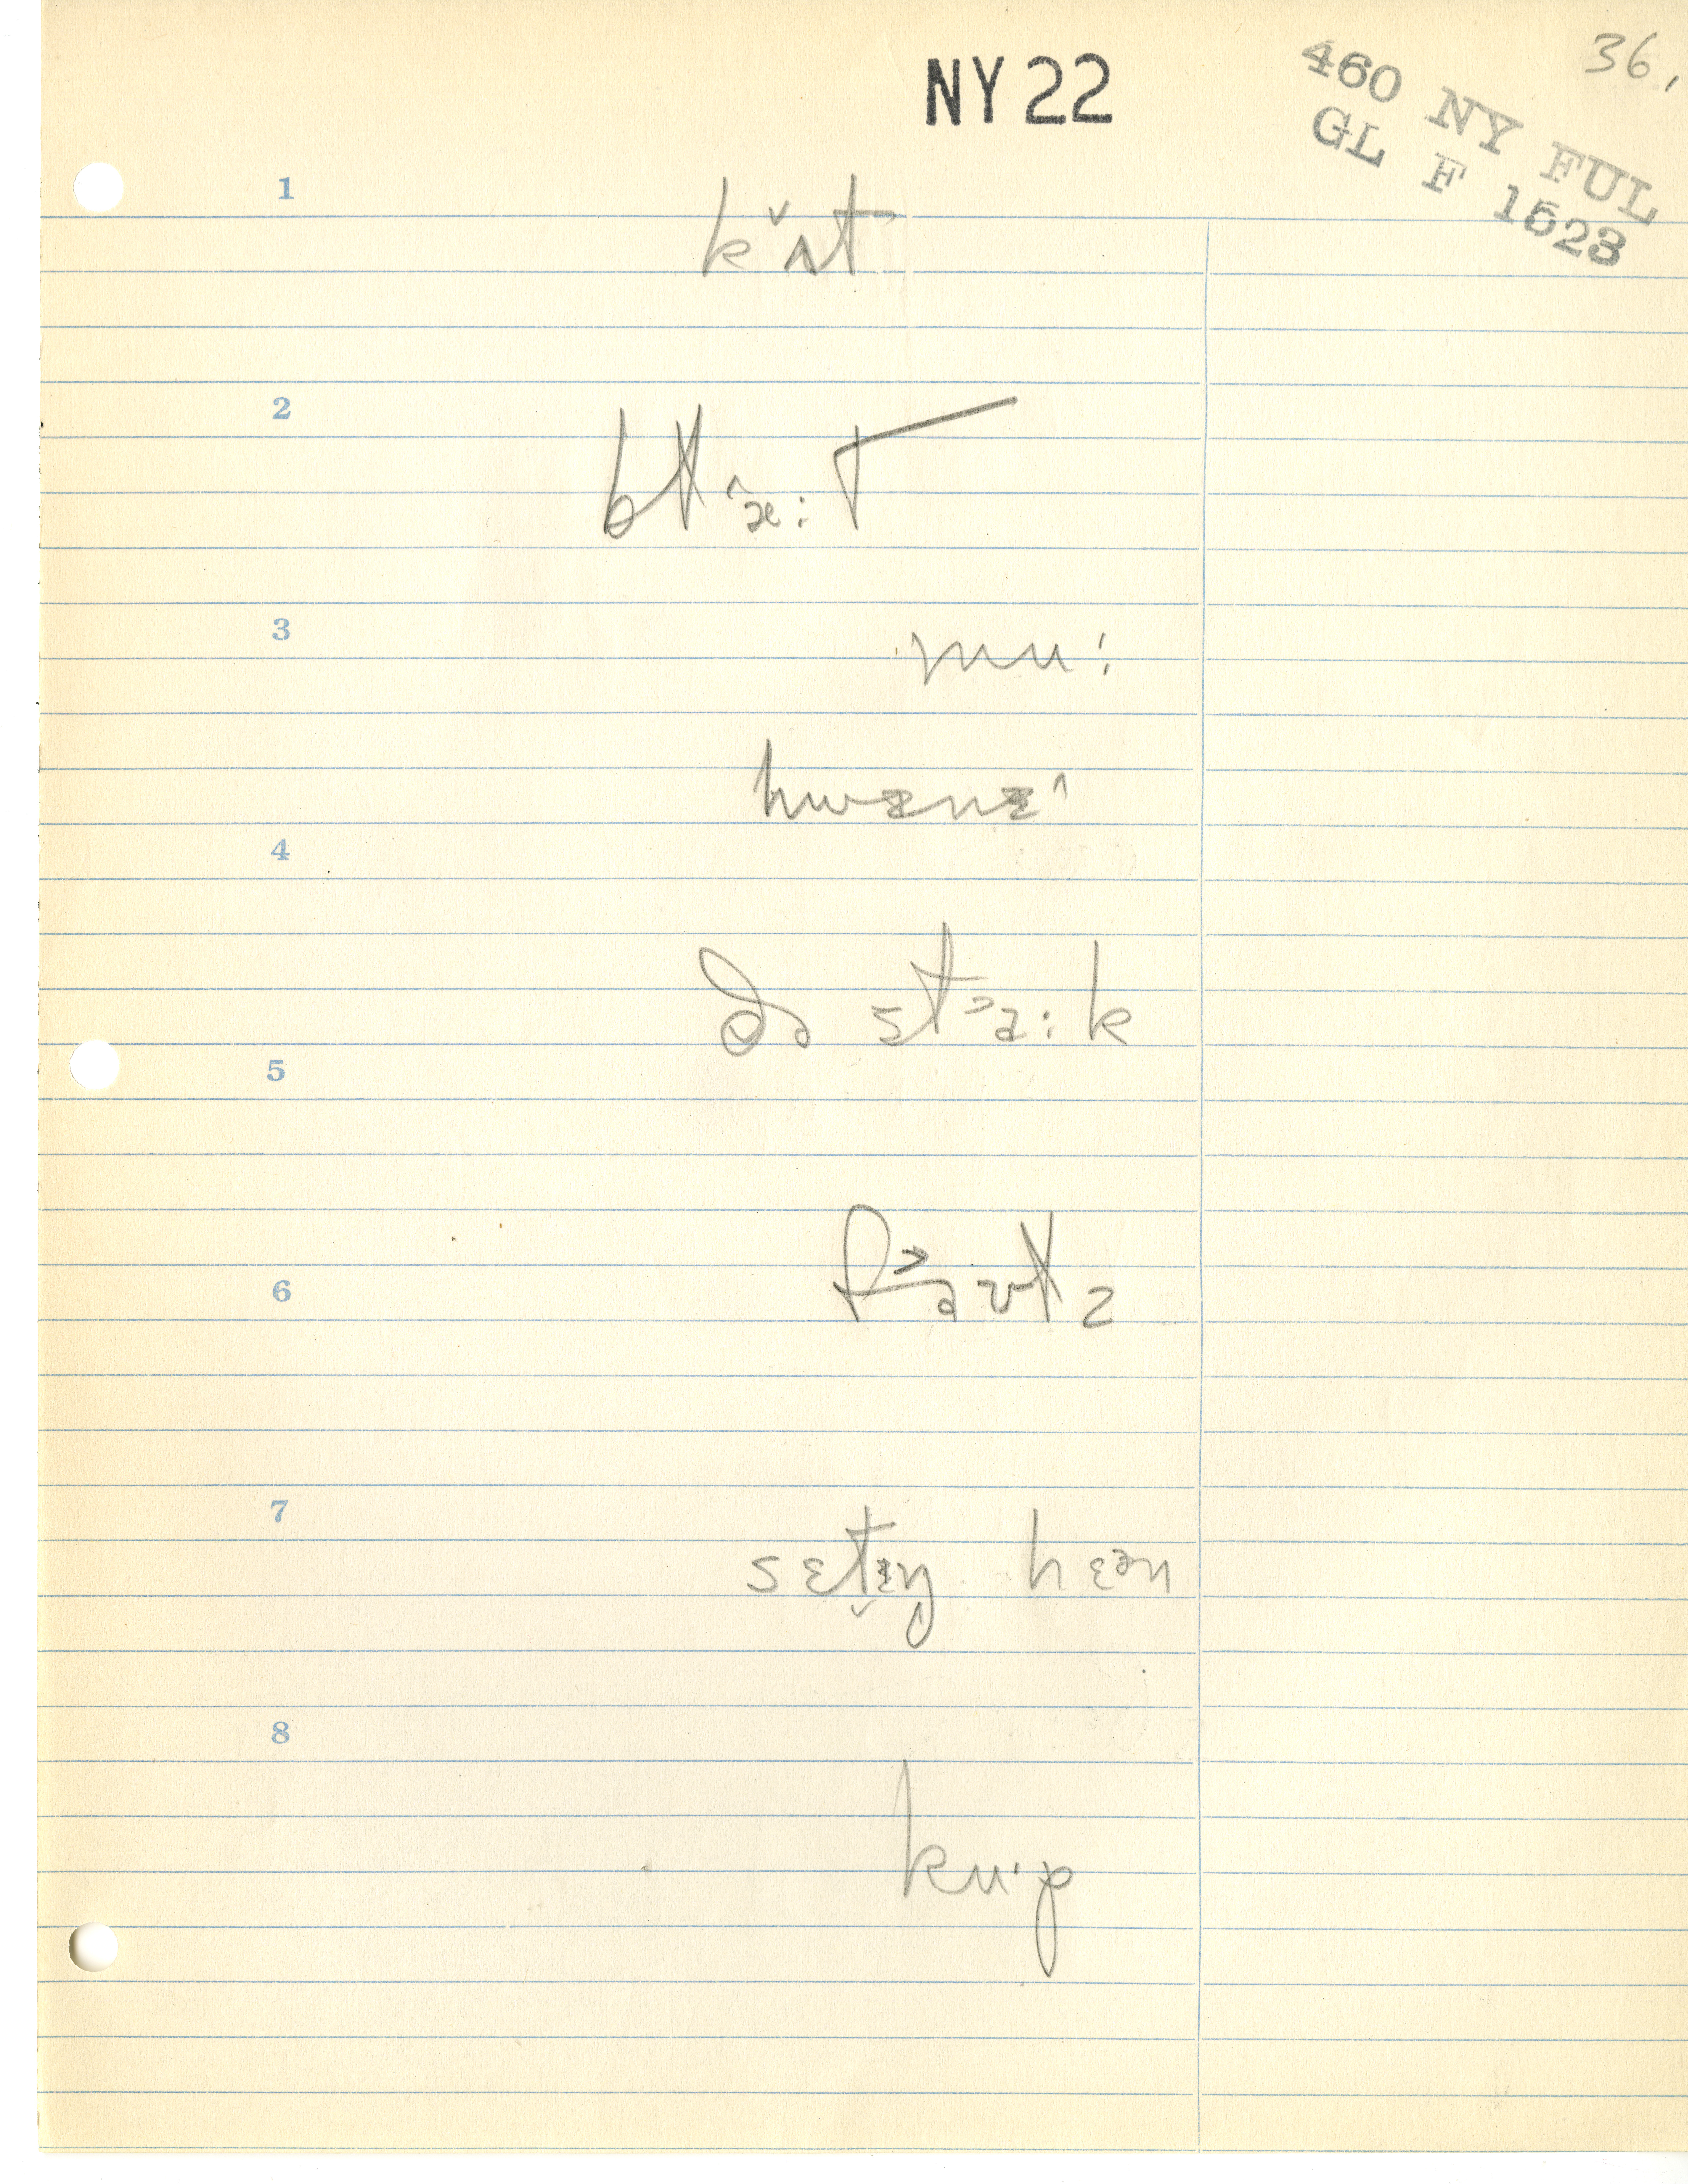 36.
NY 22
460 NY FUL
GL F 1523
1
kʌ̌t
2
3
mu:
4
ðə stɑ:k
5
6
7
setɪŋ hɛən
8
ku·p